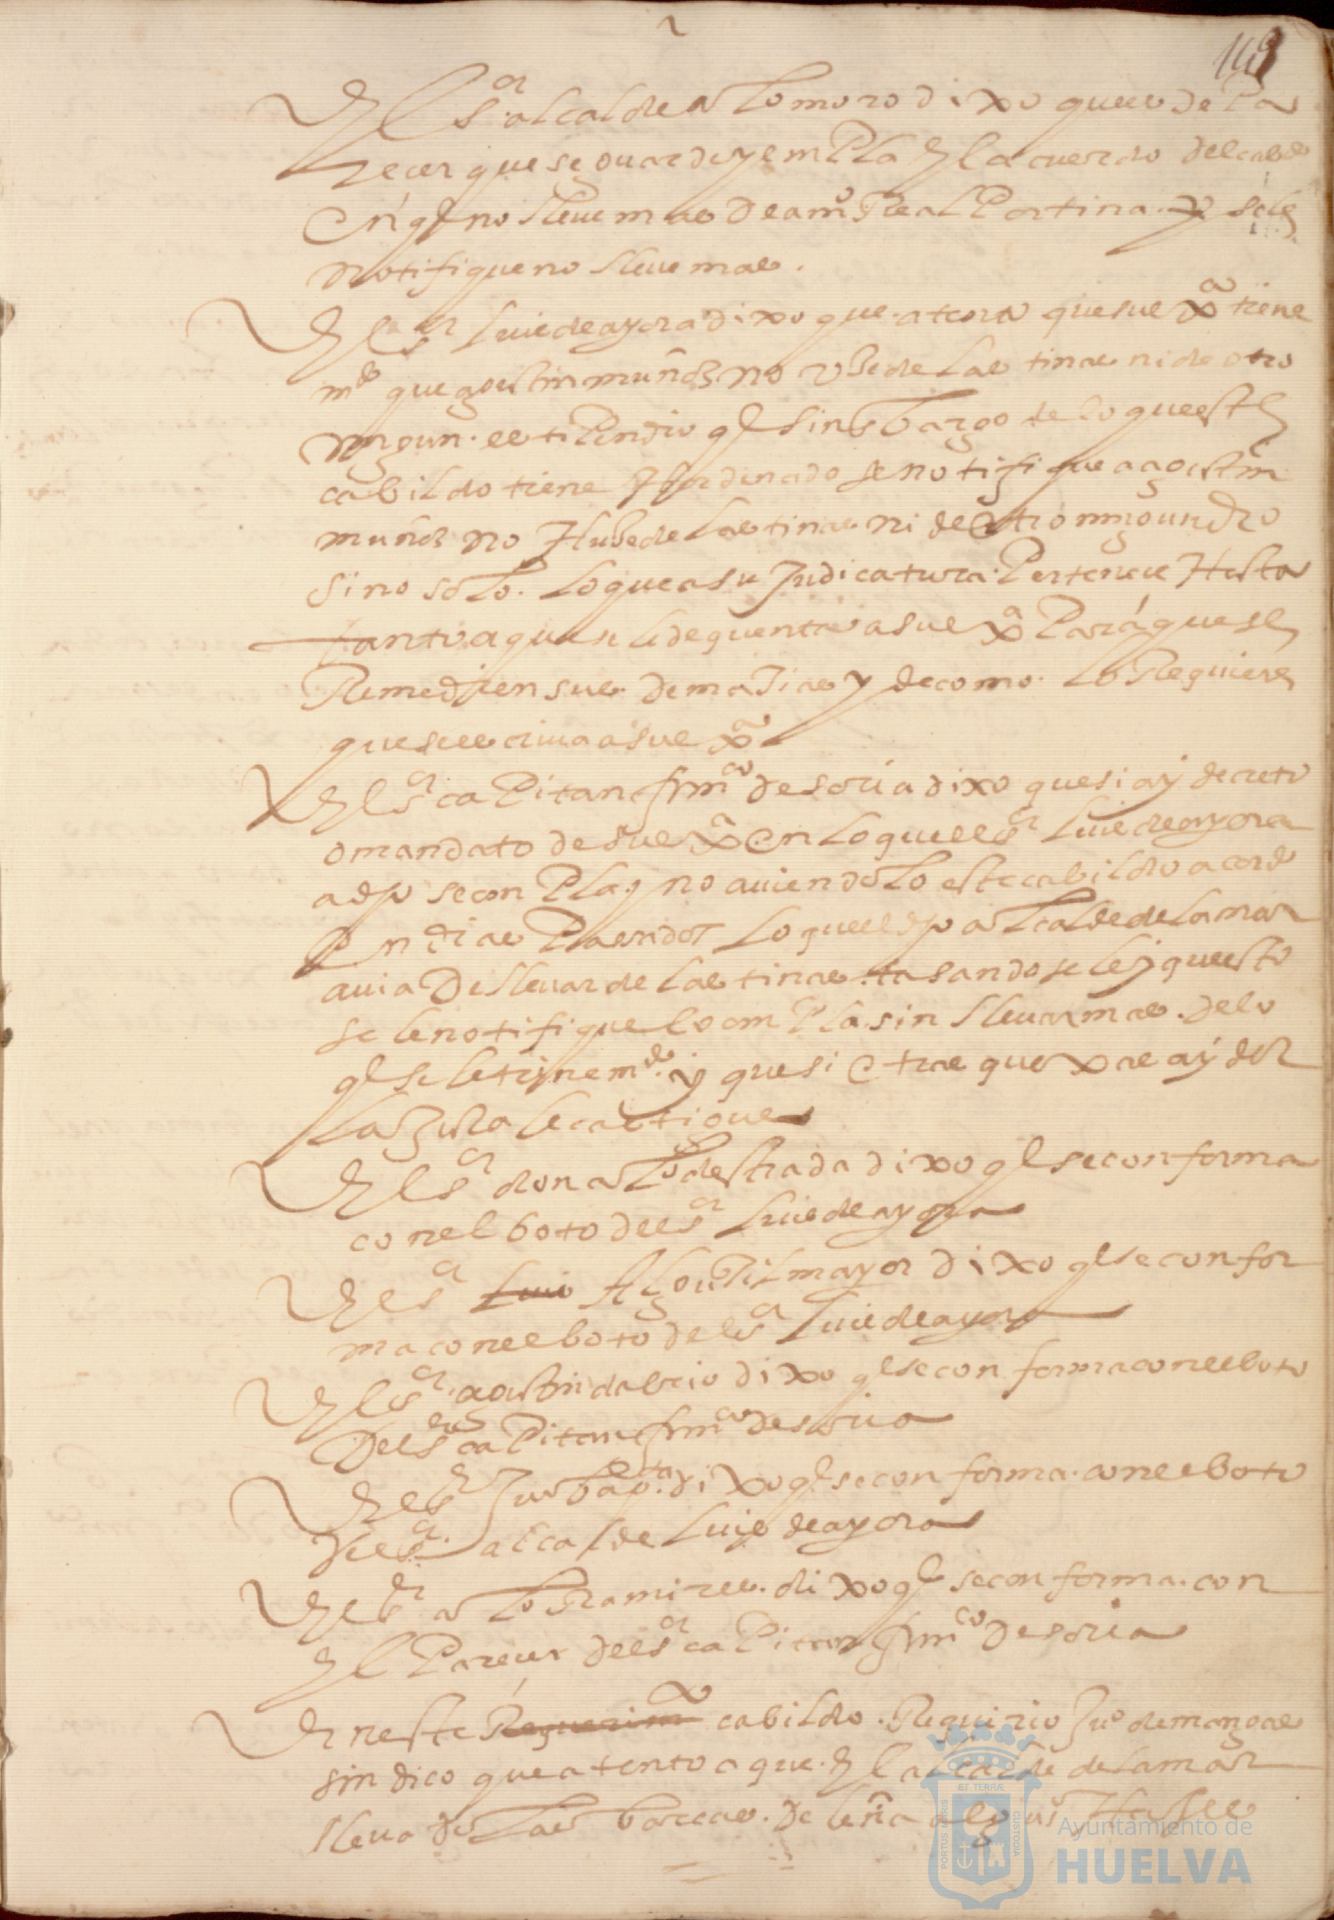 143
El sr alcalde alo moro dixo que es de pa
recer que se guarde y cumpla el acuerdo del cabdo
en q no lleve mas de a mo Real por tina y se le
notifique no lleve mas.
El sr luis de ayora dixo que atento que su exa tiene
mdo que agustin muñoz no use de las tinas ni de otro
ningun estipendio q sin enbargo de lo que este
cabildo tiene hordenado se notifique a agustin
muñoz no Husede las tinas ni de otro ningun dro
sino solo lo que a su Judicatura Pertenece Hasta
tanto que se de quenta a su exa Para que se
Remedien sus demasias y de como lo Requiere
que se escriva a su exa
El sr capitan franco de soria dixo que si ay decreto
o mandato de su exa en lo que el sr luis de ayora
a dho se conpla y no aviendolo este cabildo acordo
en dias Pasados lo que el dho alcalde de la mar
avia de llevar de las tinas tasandosele y que esto
se le notifique lo cumpla sin llevar mas de lo
q se le tiene mdo y que si otras quexas ay del
la Justa le castigue
El sr don alo destrada dixo q se conforma
con el boto del sr luis de ayora
El sr luis Alguazil mayor dixo q se confor
ma con el boto del sr luis de ayora
El sr agustin dabrio dixo q se conforma con el boto
Del sr capitan franco de soria
El sr Juo bapta dixo q se conforma con el boto
del sr alcalde luis de ayora
El sr alo Ramires dixo q se conforma con
El Parecer del sr capitan franco de soria
En este Requerimo cabildo Requirio Juo de mongas
sindico que atento a que El alcalde de la mar
lleva de las barcas de leña
PORTUS MARIS ET TERRAE CUSTODIA
Ayuntamiento de
HUELVA